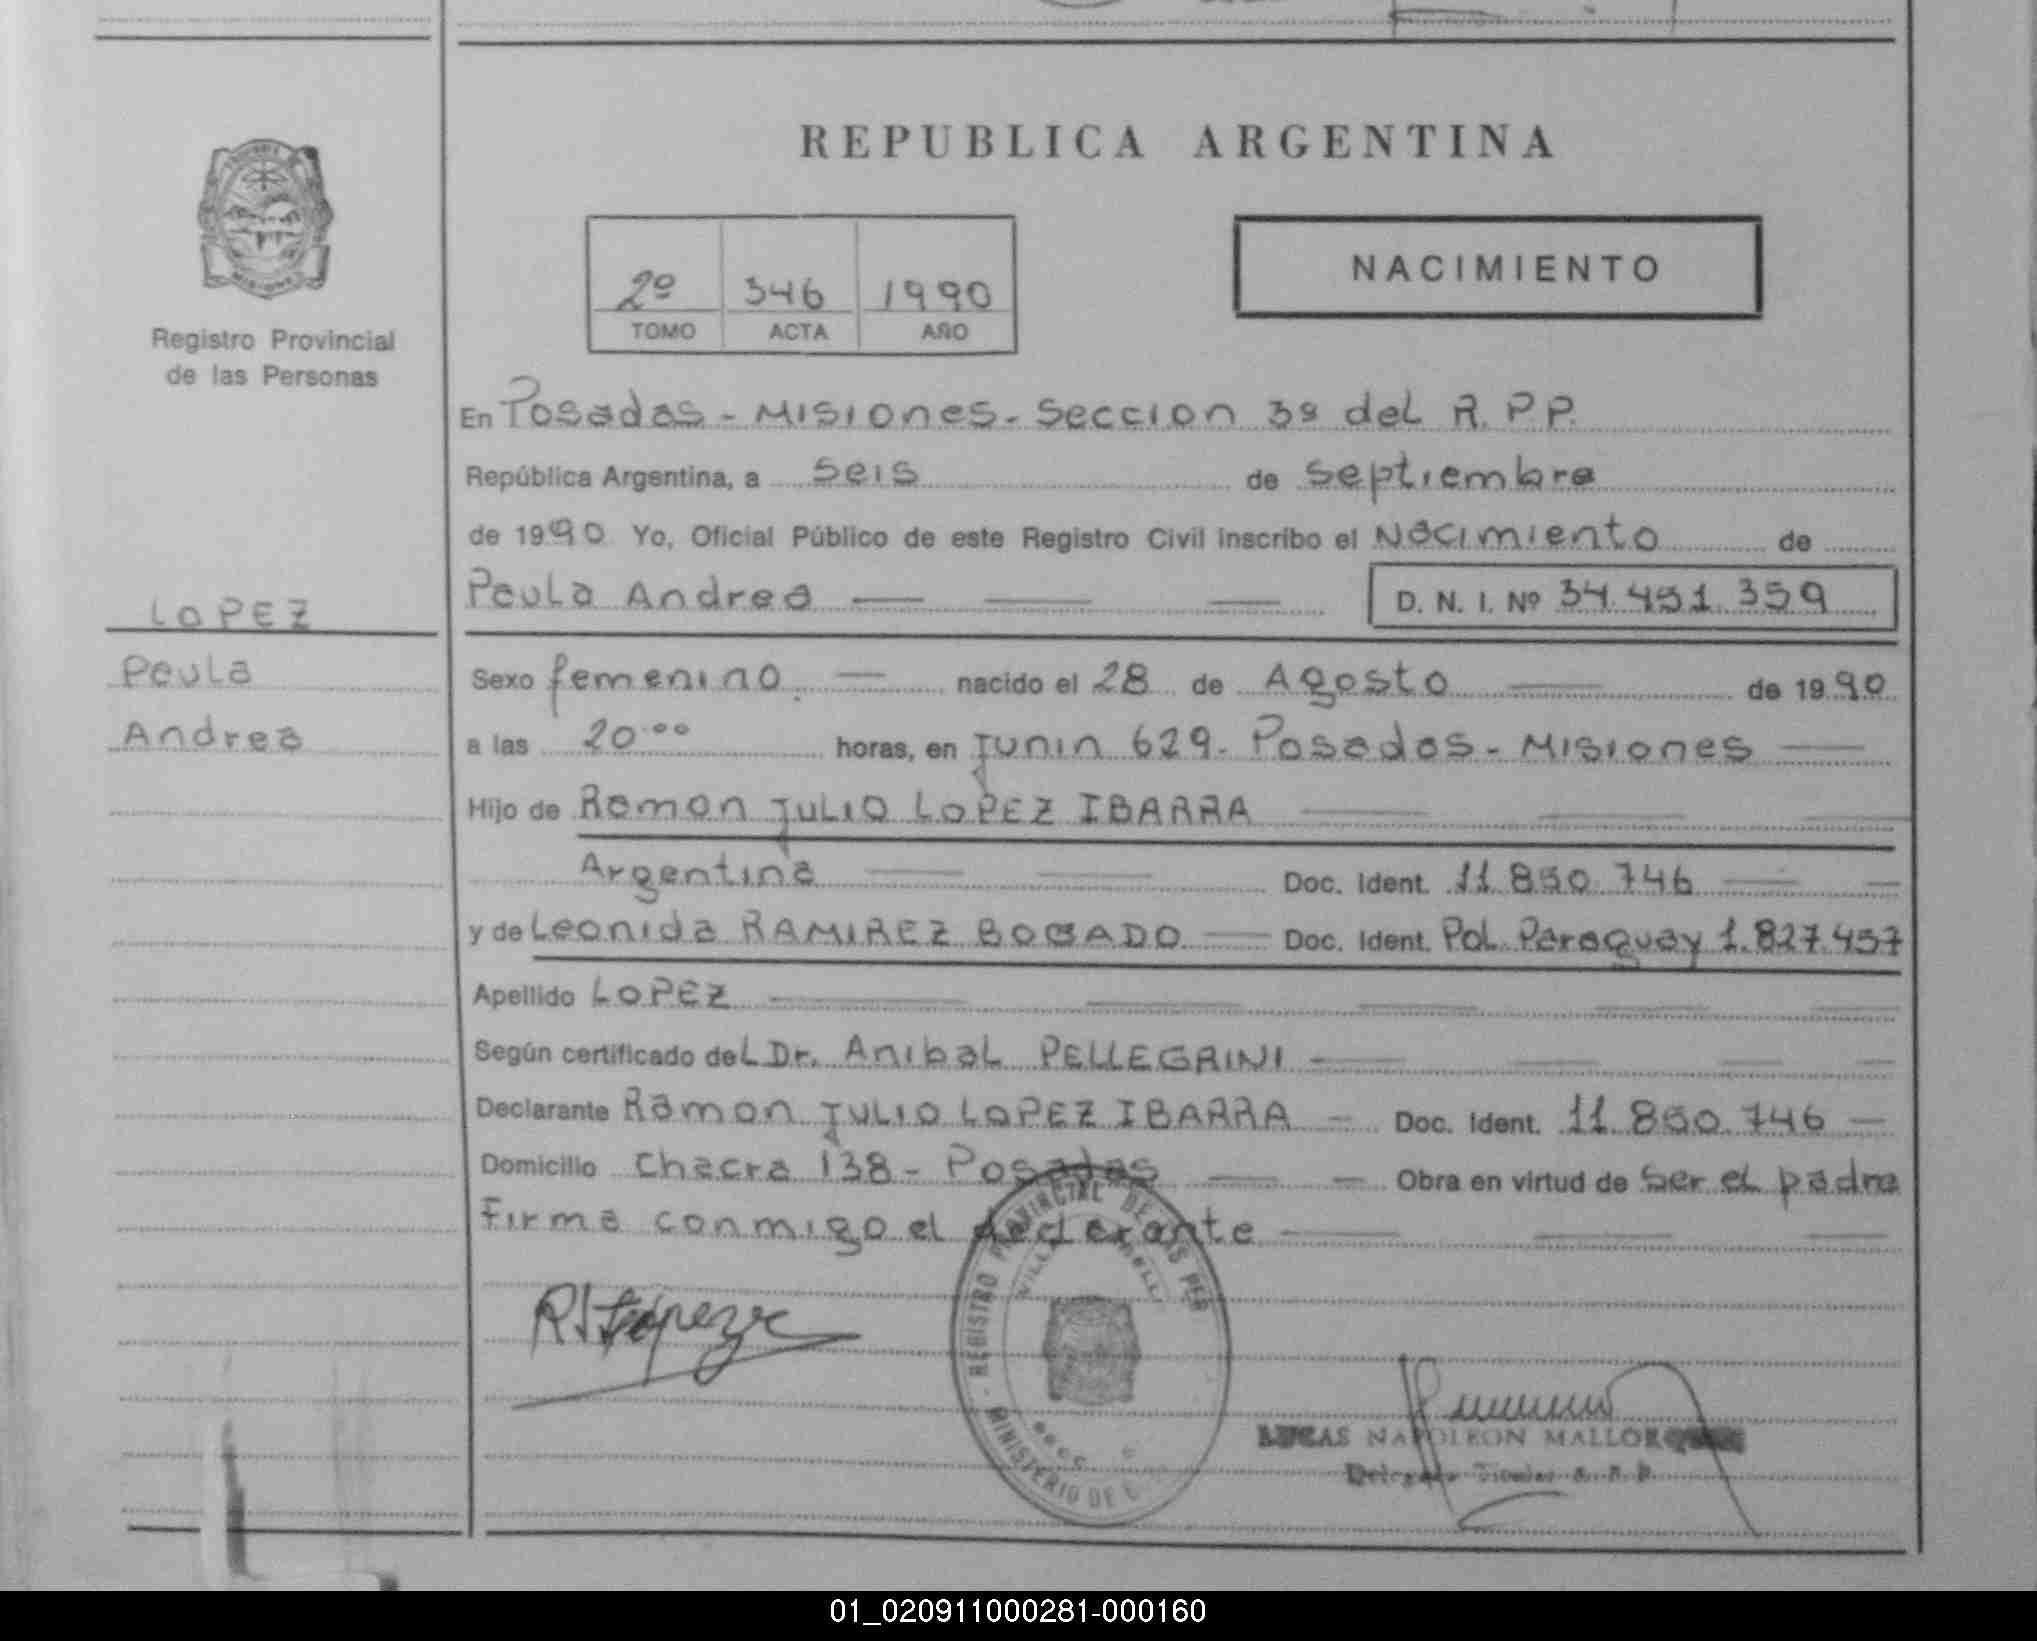 REPUBLICA ARGENTINA
NACIMIENTO
2º 346 1990
TOMO ACTA AÑO
Registro Provincial
de las Personas
En Posadas - Misiones - Seccion 3ª del R.P.P.
República Argentina, a seis de septiembre
de 1990 Yo, Oficial Público de este Registro Civil inscribo el Nacimiento de
Paula Andrea D. N. I. Nº 34.451.359
LOPEZ
Paula
Andrea
Sexo femenino. nacido el 28 de Agosto de 1990
a las 20.00 horas, en Junin 629 - Posadas - Misiones
Hijo de Ramon Julio LOPEZ IBARRA
Argentina Doc. Ident. 11.850.746
y de Leonida RAMIREZ BOGADO Doc. Ident. Pol. Paraguay 1.827.457
Apellido LOPEZ
Según certificado del Dr. Anibal PELLEGRINI
Declarante Ramon Julio LOPEZ IBARRA - Doc. Ident. 11.850.746
Domicilio Chacra 138 - Posadas Obra en virtud de ser el padre
Firma conmigo el declarante
REGISTRO PROVINCIAL DE LAS PER
MINISTERIO DE
LUCAS NAPOLEON
01_020911000281-000160